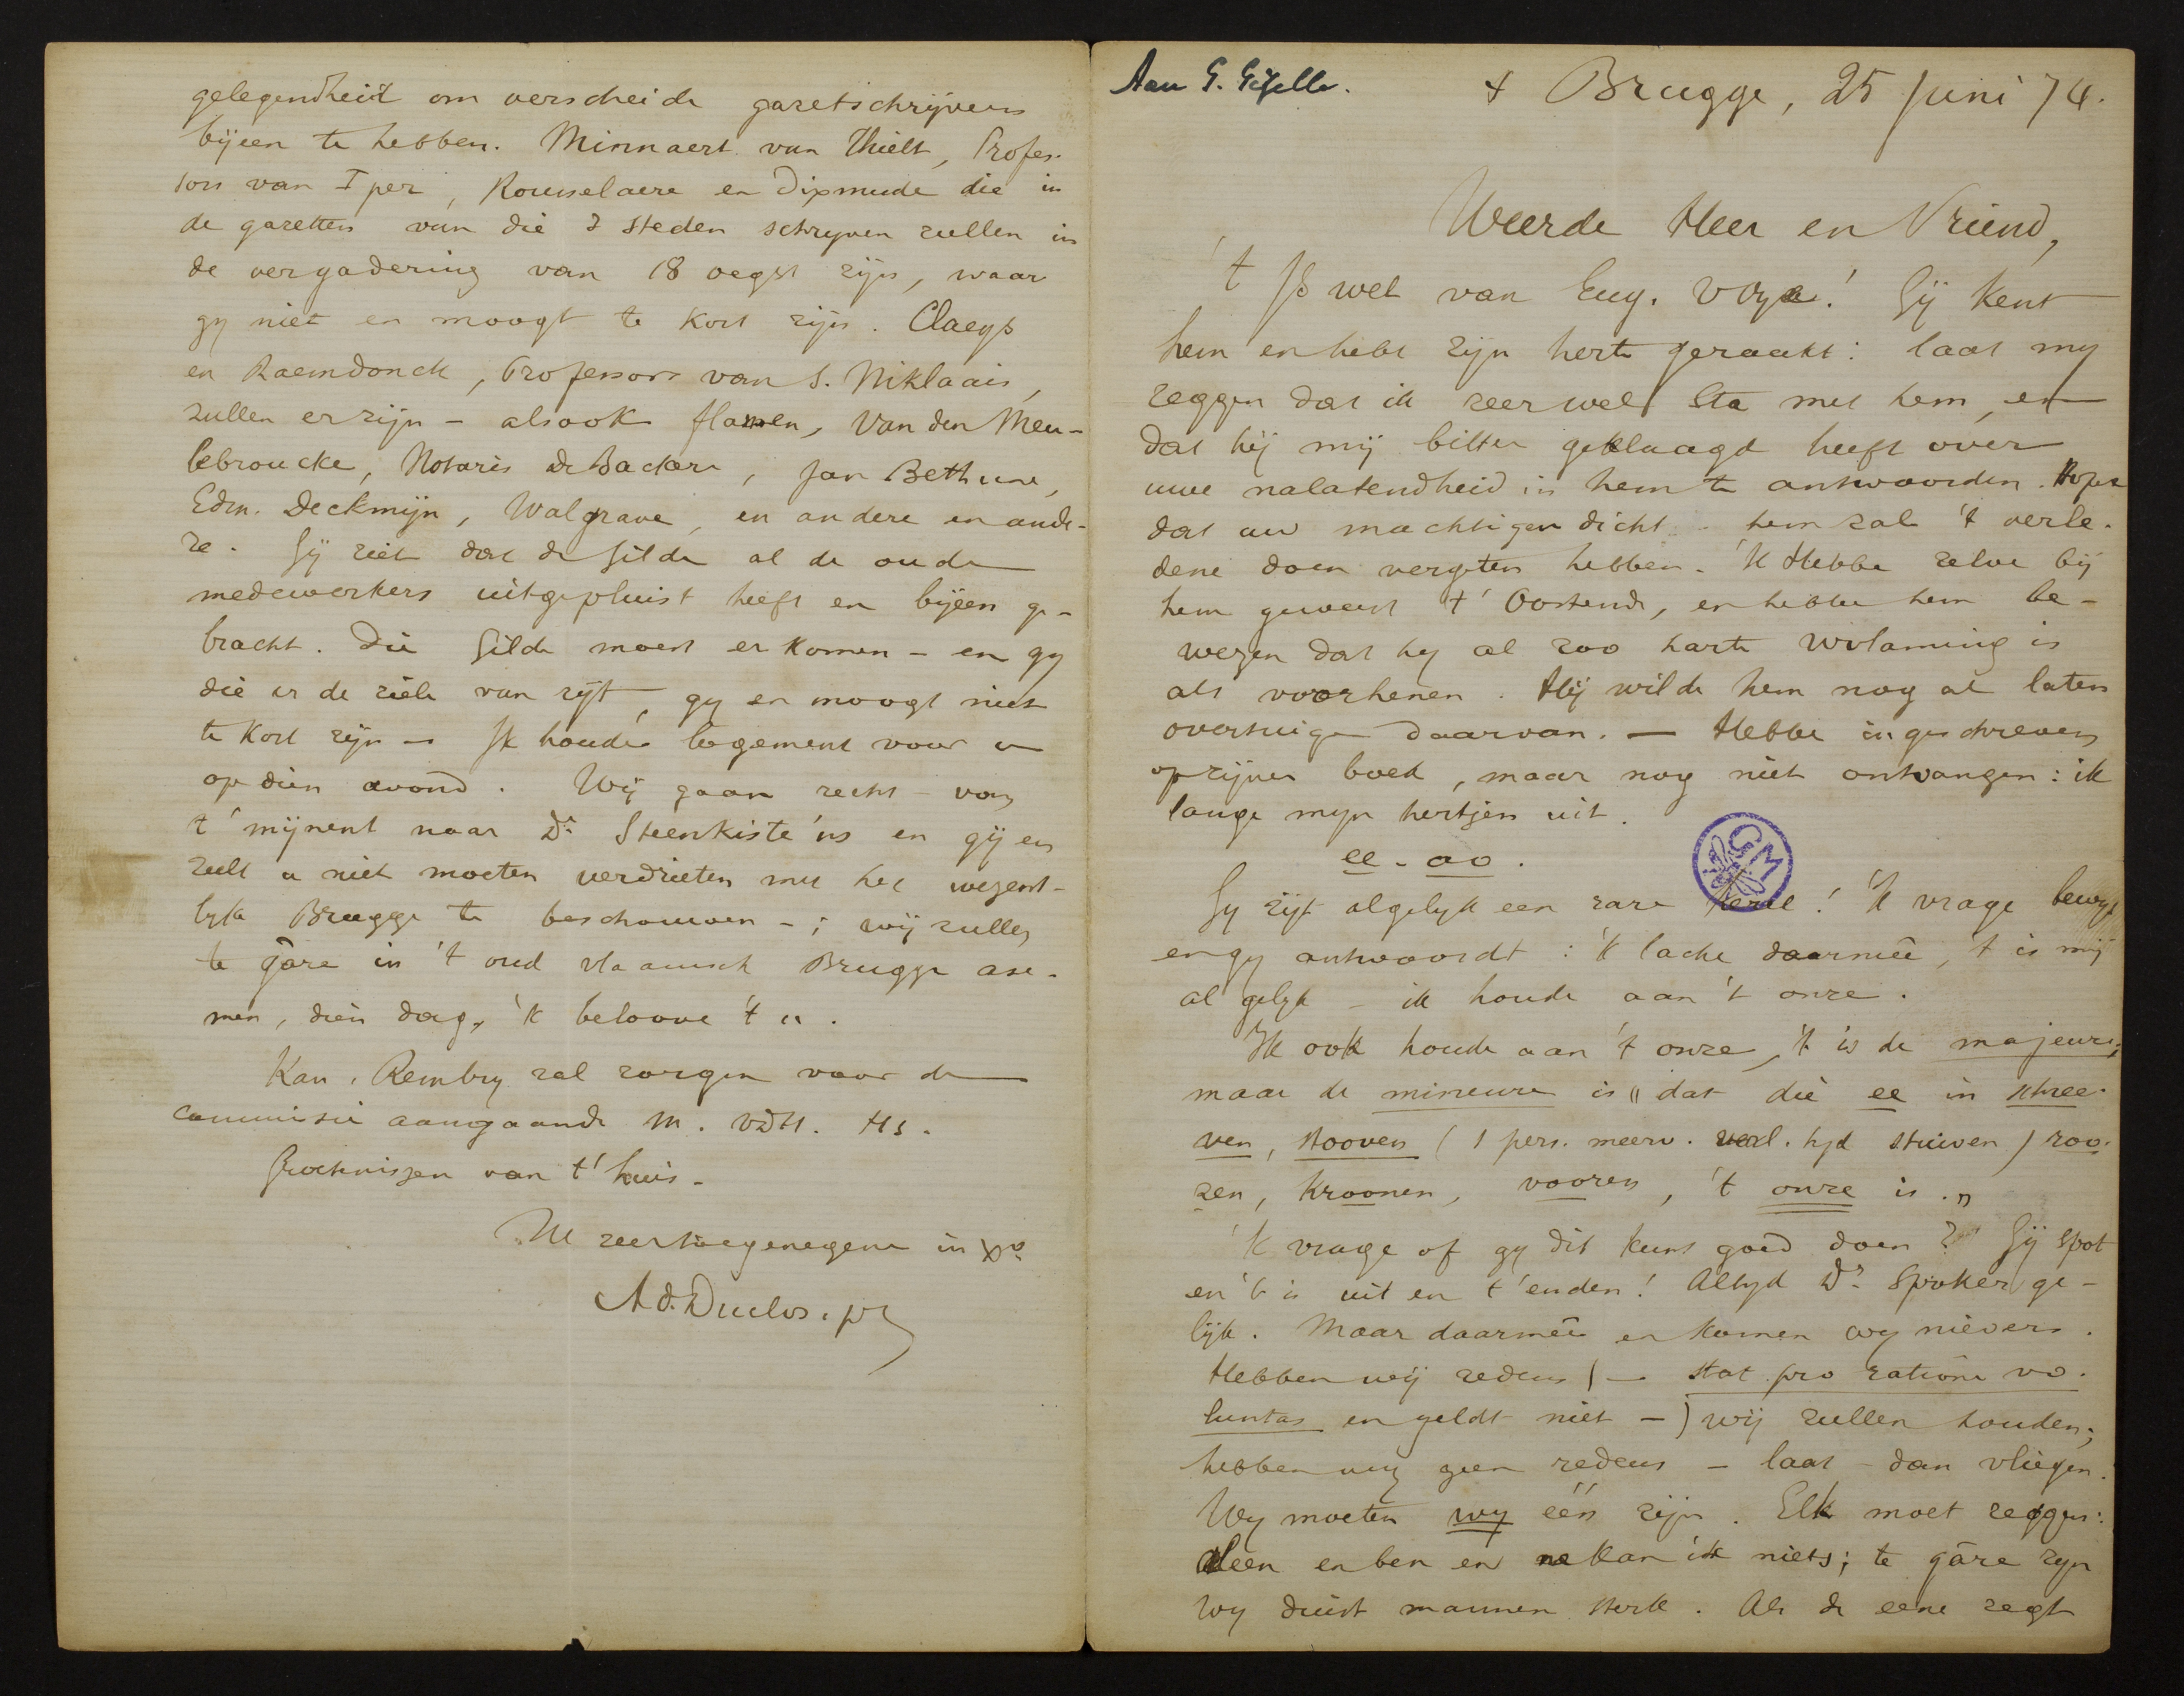 Aan G. Gezelle.
+ Brugge, 25 Juni 74.
Weerde Heer en Vriend,
't Is wel van Eug. V Oye! Gij kent
hem en hebt zijn herte geraakt: laat my
zeggen dat ik zeer wel sta met hem, en
dat hij mij bitter geklaagd heeft over
uwe nalatendheid in hem te antwoorden. Hope
dat uw machtigen dicht hem zal 't verle-
dene doen vergeten hebben. 'K Hebbe zelve bij
hem geweest t' Oostende, en hebbe hem be-
wezen dat hy al zoo harte Wvlaming is
als voorhenen. Hij wilde hem nog al laten
overtuigen daarvan. — Hebbe ingeschreven
op zijnen boek, maar nog niet ontvangen: ik
lange myn hertjen uit.
ee - oo.
GM
Gy zyt algelyk een rare kerel! 'K vrage bewys
en gy antwoordt: 'k lache daarmeê, 't is mij
al gelyk - ik houde aan 't onze.
Ik ook houde aan 't onze, 't is de majeure;
maar de mineure is "dat die ee in schree-
ven, stooven (1 pers. meerv. verl. tyd stuiven) roo-
zen, kroonen, vooren, 't onze is."
'K vrage of gy dit kunt goed doen? Gij spot
en 't is uit en t' enden! Altyd Dr. Spoker ge-
lijk. Maar daarmeê en komen wy nievers.
Hebben wij redens (- stat pro ratione vo-
luntas en geldt niet -) wij zullen houden;
hebben wy geen redens - laat dan vliegen.
Wy moeten wy één zijn. Elk moet zeggen:
Alleen en ben en ne kan ik niets; te gâre zyn
wy duist mannen sterk. Als de eene zegt
gelegendheid om verscheide gazetschrijvers
bijeen te hebben. Minnaert van Thielt, Profes-
sors van Iper, Rousselaere en Dixmude die in
de gazetten van die 3 steden schryven zullen in
de vergadering van 18 oegst zijn, waar
gy niet en moogt te kort zijn. Claeys
en Raemdonck, Professors van S. Niklaais,
zullen er zijn - alsook Hamen, Van den Meu-
lebroucke, Notaris De Backere, Jan Bethune,
Edm. Deckmijn, Walgrave, en andere en ande-
re. Gij ziet dat de Gilde al de oude
medewerkers uitgepluist heeft en bijeen ge-
bracht. Die Gilde moest er komen - en gy
die er de ziele van zijt, gy en moogt niet
te kort zijn - Ik houde logement voor u
op dien avond. Wij gaan recht van
t' mijnent naar Dr. Steenkiste'ns en gij en
zult u niet moeten verdrieten met het wezent-
lyk Brugge te beschouwen -; wij zullen
te gâre in 't oud vlaamsch Brugge ase-
men, dien dag, 'k beloove 't u.
Kan. Rembry zal zorgen voor de
commissie aangaande M. VDH. Hs.
Groetenissen van t' huis.
Ul zeer toegenegene in Xo
Ad. Duclos, pr